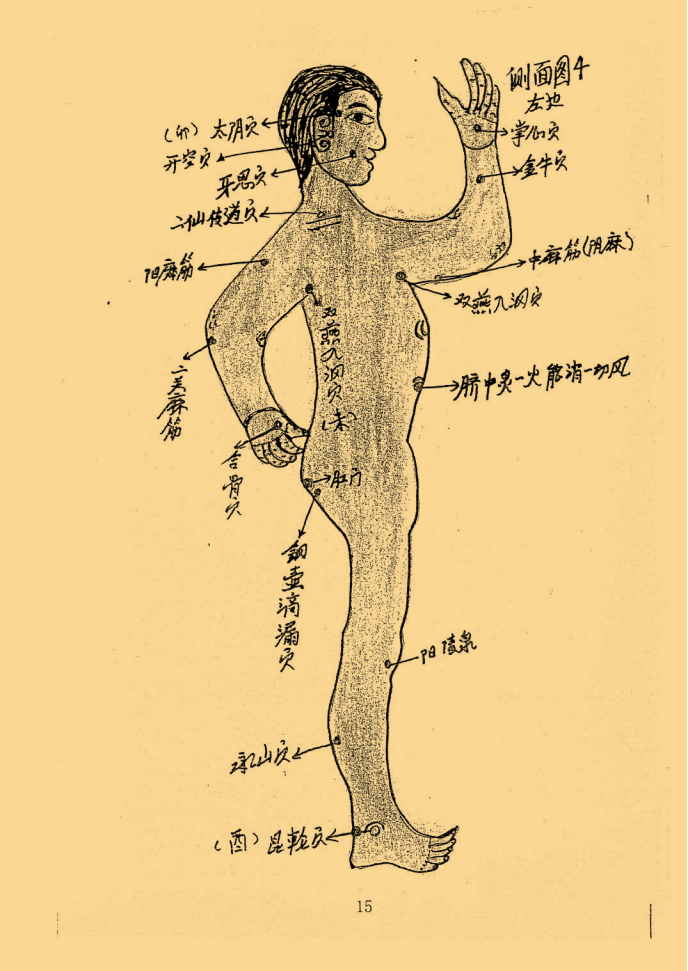 侧面图4
左边
(卯) 太阴穴
开空穴
牙思穴
二仙传道穴
阳麻筋
二美麻筋
合骨穴
掌心穴
金牛穴
中麻筋(阴麻)
双燕入洞穴
双燕入洞穴(未)
脐中灸一火能消一切风
肛门
铜壶滴漏穴
阳陵泉
承山穴
(酉) 昆轮穴
15